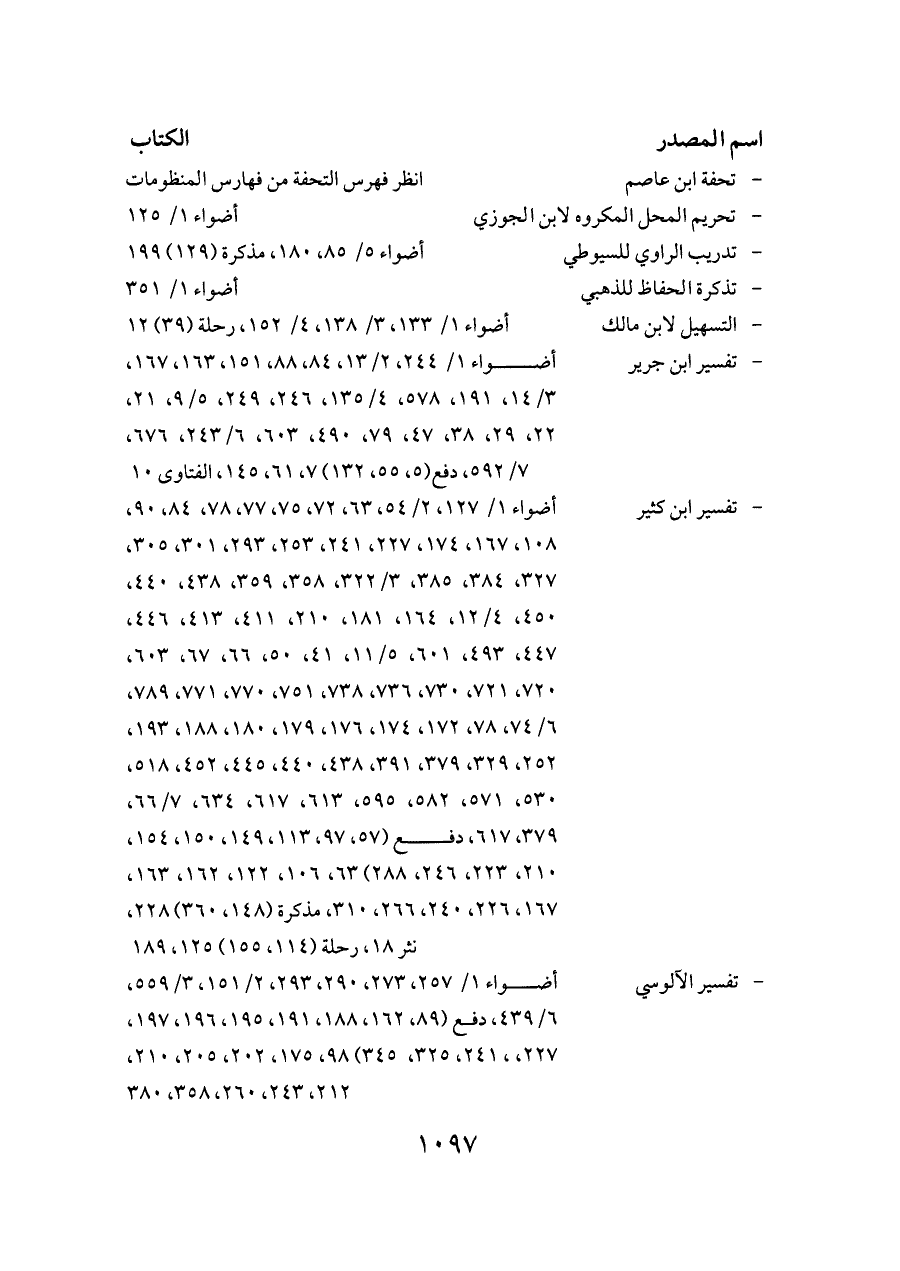 اسم المصدر الكتاب
- تحفة ابن عاصم انظر فهرس التحفة من فهارس المنظومات
- تحريم المحل المكروه لابن الجوزي أضواء ١/ ١٢٥
- تدريب الراوي للسيوطي أضواء ٥/ ٨٥، ١٨٠، مذكرة (١٢٩) ١٩٩
- تذكرة الحفاظ للذهبي أضواء ١/ ٣٥١
- التسهيل لابن مالك أضواء ١/ ١٣٣، ٣/ ١٣٨، ٤/ ١٥٢، رحلة (٣٩) ١٢
- تفسير ابن جرير أضـــــواء ١/ ٢٤٤، ٢/ ١٣، ٨٤، ٨٨، ١٥١، ١٦٣، ١٦٧،
٣/ ١٤، ١٩١، ٥٧٨، ٤/ ١٣٥، ٢٤٦، ٢٤٩، ٥/ ٩، ٢١،
٢٢، ٢٩، ٣٨، ٤٧، ٧٩، ٤٩٠، ٦٠٣، ٦/ ٢٤٣، ٦٧٦،
٧/ ٥٩٢، دفع(٥، ٥٥، ١٣٢) ٧، ٦١، ١٤٥، الفتاوى ١٠
- تفسير ابن كثير أضواء ١/ ١٢٧، ٢/ ٥٤، ٦٣، ٧٢، ٧٥، ٧٧، ٧٨، ٨٤، ٩٠،
١٠٨، ١٦٧، ١٧٤، ٢٢٧، ٢٤١، ٢٥٣، ٢٩٣، ٣٠١، ٣٠٥،
٣٢٧، ٣٨٤، ٣٨٥، ٣/ ٣٢٢، ٣٥٨، ٣٥٩، ٤٣٨، ٤٤٠،
٤٥٠، ٤/ ١٢، ١٦٤، ١٨١، ٢١٠، ٤١١، ٤١٣، ٤٤٦،
٤٤٧، ٤٩٣، ٦٠١، ٥/ ١١، ٤١، ٥٠، ٦٦، ٦٧، ٦٠٣،
٧٢٠، ٧٢١، ٧٣٠، ٧٣٦، ٧٣٨، ٧٥١، ٧٧٠، ٧٧١، ٧٨٩،
٦/ ٧٤، ٧٨، ١٧٢، ١٧٤، ١٧٦، ١٧٩، ١٨٠، ١٨٨، ١٩٣،
٢٥٢، ٣٢٩، ٣٧٩، ٣٩١، ٤٣٨، ٤٤٠، ٤٤٥، ٤٥٢، ٥١٨،
٥٣٠، ٥٧١، ٥٨٢، ٥٩٥، ٦١٣، ٦١٧، ٦٣٤، ٧/ ٦٦،
٣٧٩، ٦١٧، دفـــــع (٥٧، ٩٧، ١١٣، ١٤٩، ١٥٠، ١٥٤،
٢١٠، ٢٢٣، ٢٤٦، ٢٨٨) ٦٣، ١٠٦، ١٢٢، ١٦٢، ١٦٣،
١٦٧، ٢٢٦، ٢٤٠، ٢٦٦، ٣١٠، مذكرة (١٤٨، ٣٦٠) ٢٢٨،
نثر ١٨، رحلة (١١٤، ١٥٥) ١٢٥، ١٨٩
- تفسير الآلوسي أضــــواء ١/ ٢٥٧، ٢٧٣، ٢٩٠، ٢٩٣، ٢/ ١٥١، ٣/ ٥٥٩،
٦/ ٤٣٩، دفـع (٨٩، ١٦٢، ١٨٨، ١٩١، ١٩٥، ١٩٦، ١٩٧،
٢٢٧، ، ٢٤١، ٣٢٥، ٣٤٥) ٩٨، ١٧٥، ٢٠٢، ٢٠٥، ٢١٠،
٢١٢، ٢٤٣، ٢٦٠، ٣٥٨، ٣٨٠
١٠٩٧